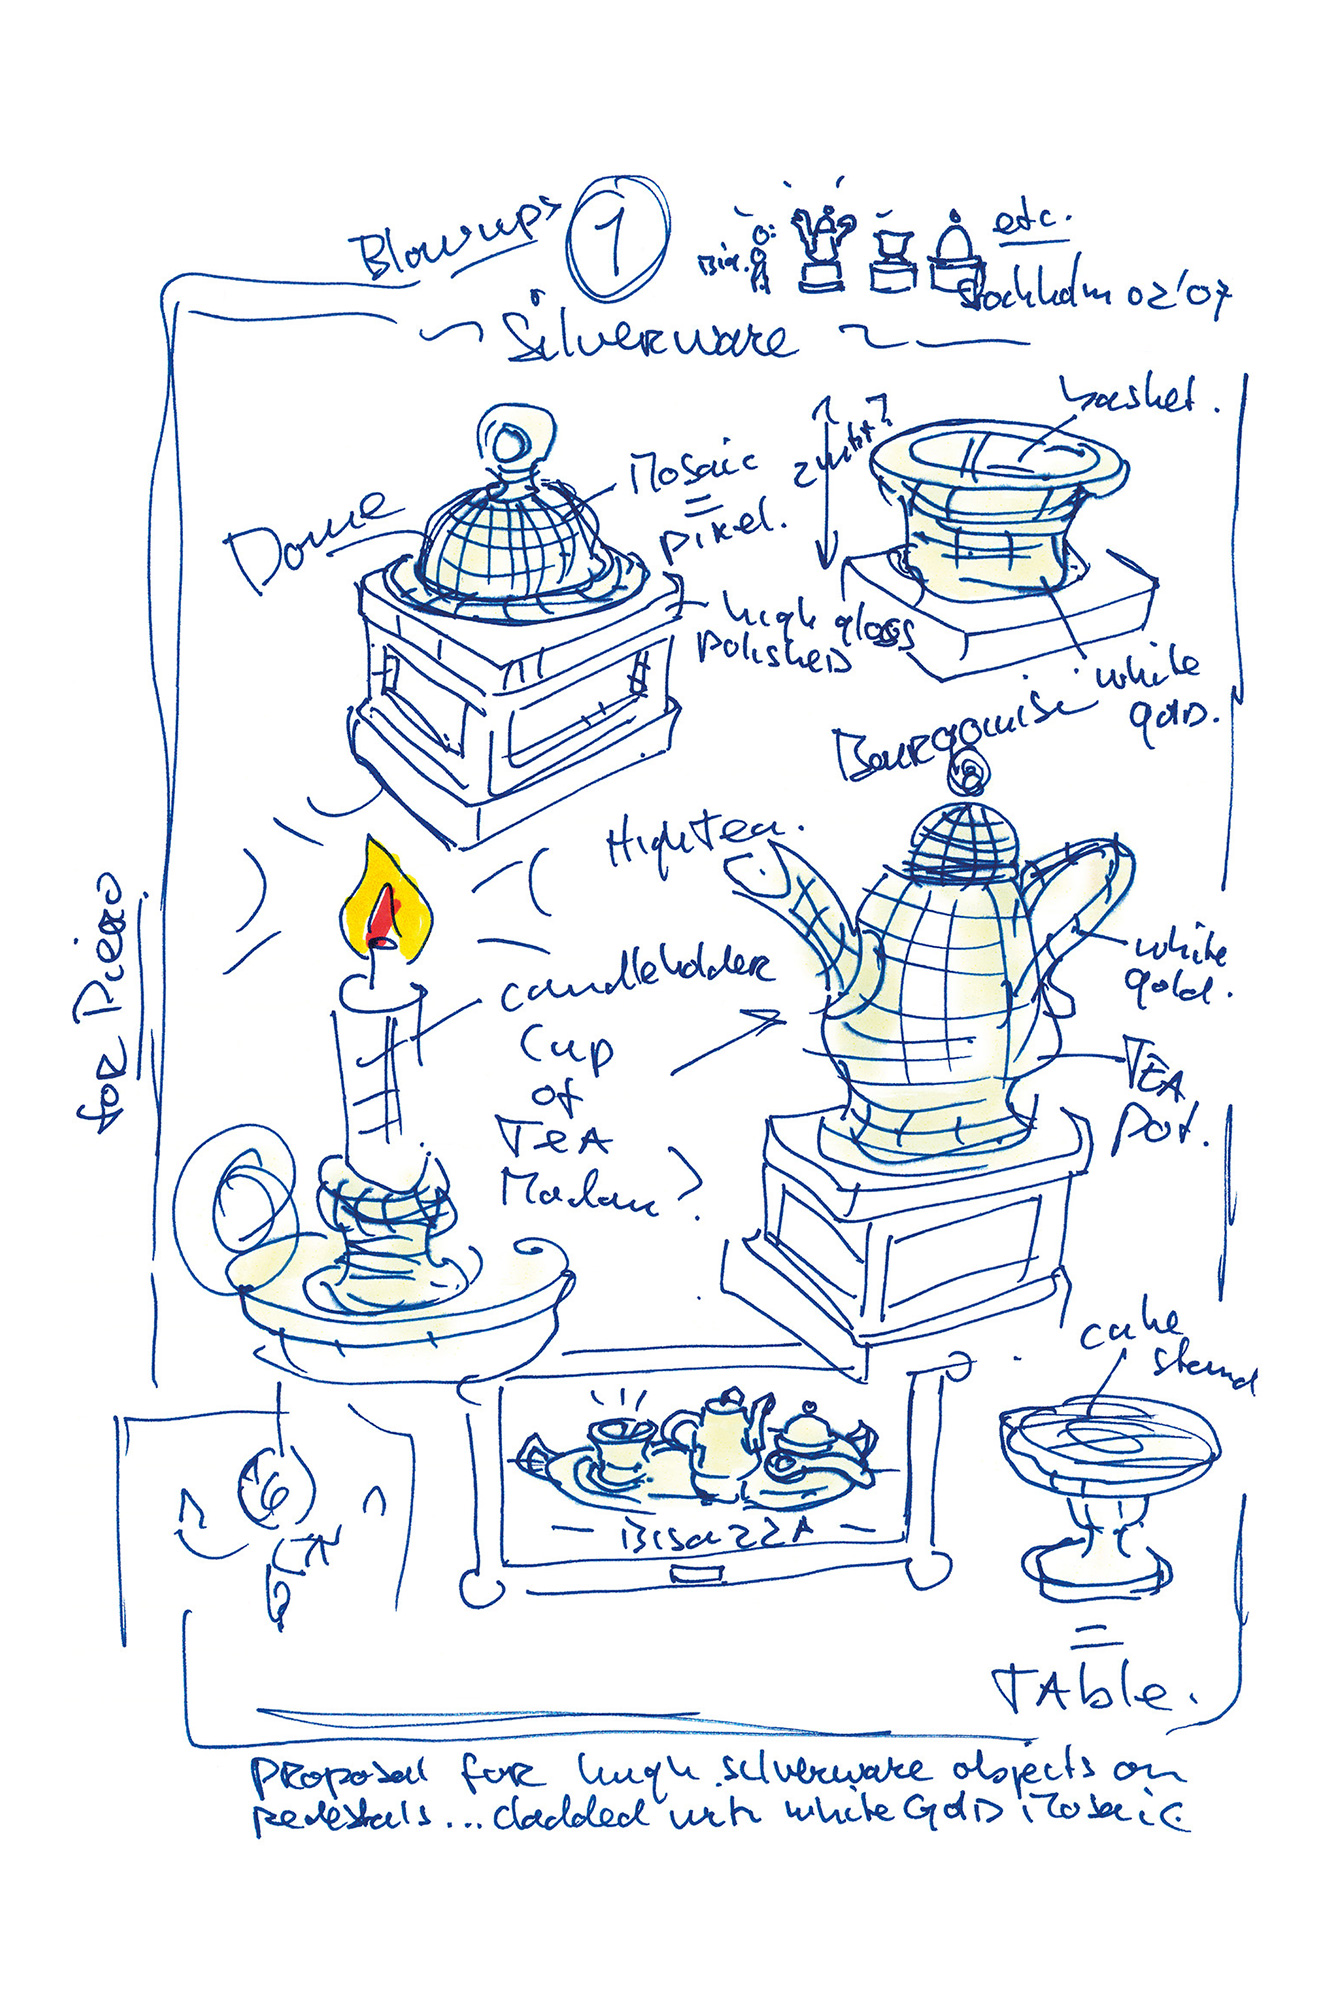 Blow ups
1
Big.
etc.
Stockholm 02'07
Silverware
basket.
Mosaic
=
pixel.
Dome
high gloss
polished
white
gold.
High Tea.
for Piero
candleholder
Cup
of
TEA
Madam?
white
gold.
TEA
pot.
cake
stand
- Bisazza -
=
TAble.
Proposal for hugh silverware objects on
pedestals... cladded with white Gold Mosaic